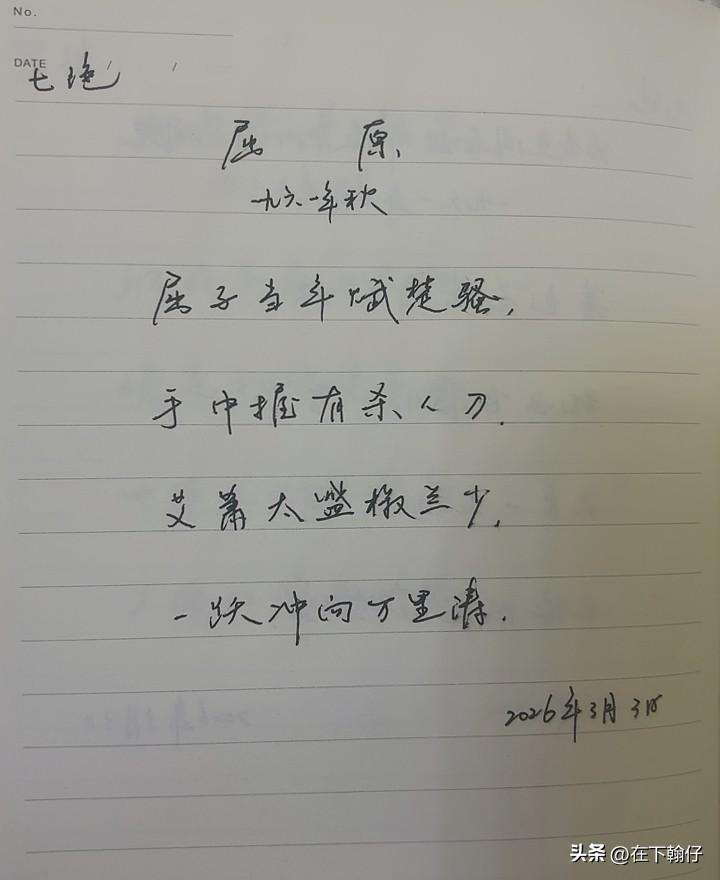 No.
DATE / /
七绝
屈 原
一九六一年秋
屈子当年赋楚骚,
手中握有杀人刀.
艾萧太盛椒兰少,
一跃冲向万里涛.
2026年3月3日
头条 @在下翰仔